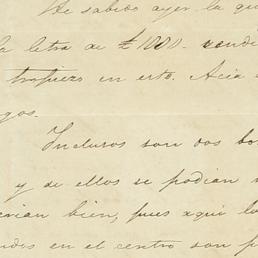 He sabido ayer la qu
la letra de £1000. vendi
tropiezo en esto. Acia
gos.
Inclusos son dos bo
y de ellos se podian
erian bien, pues aqui lo
ndes en el centro son p